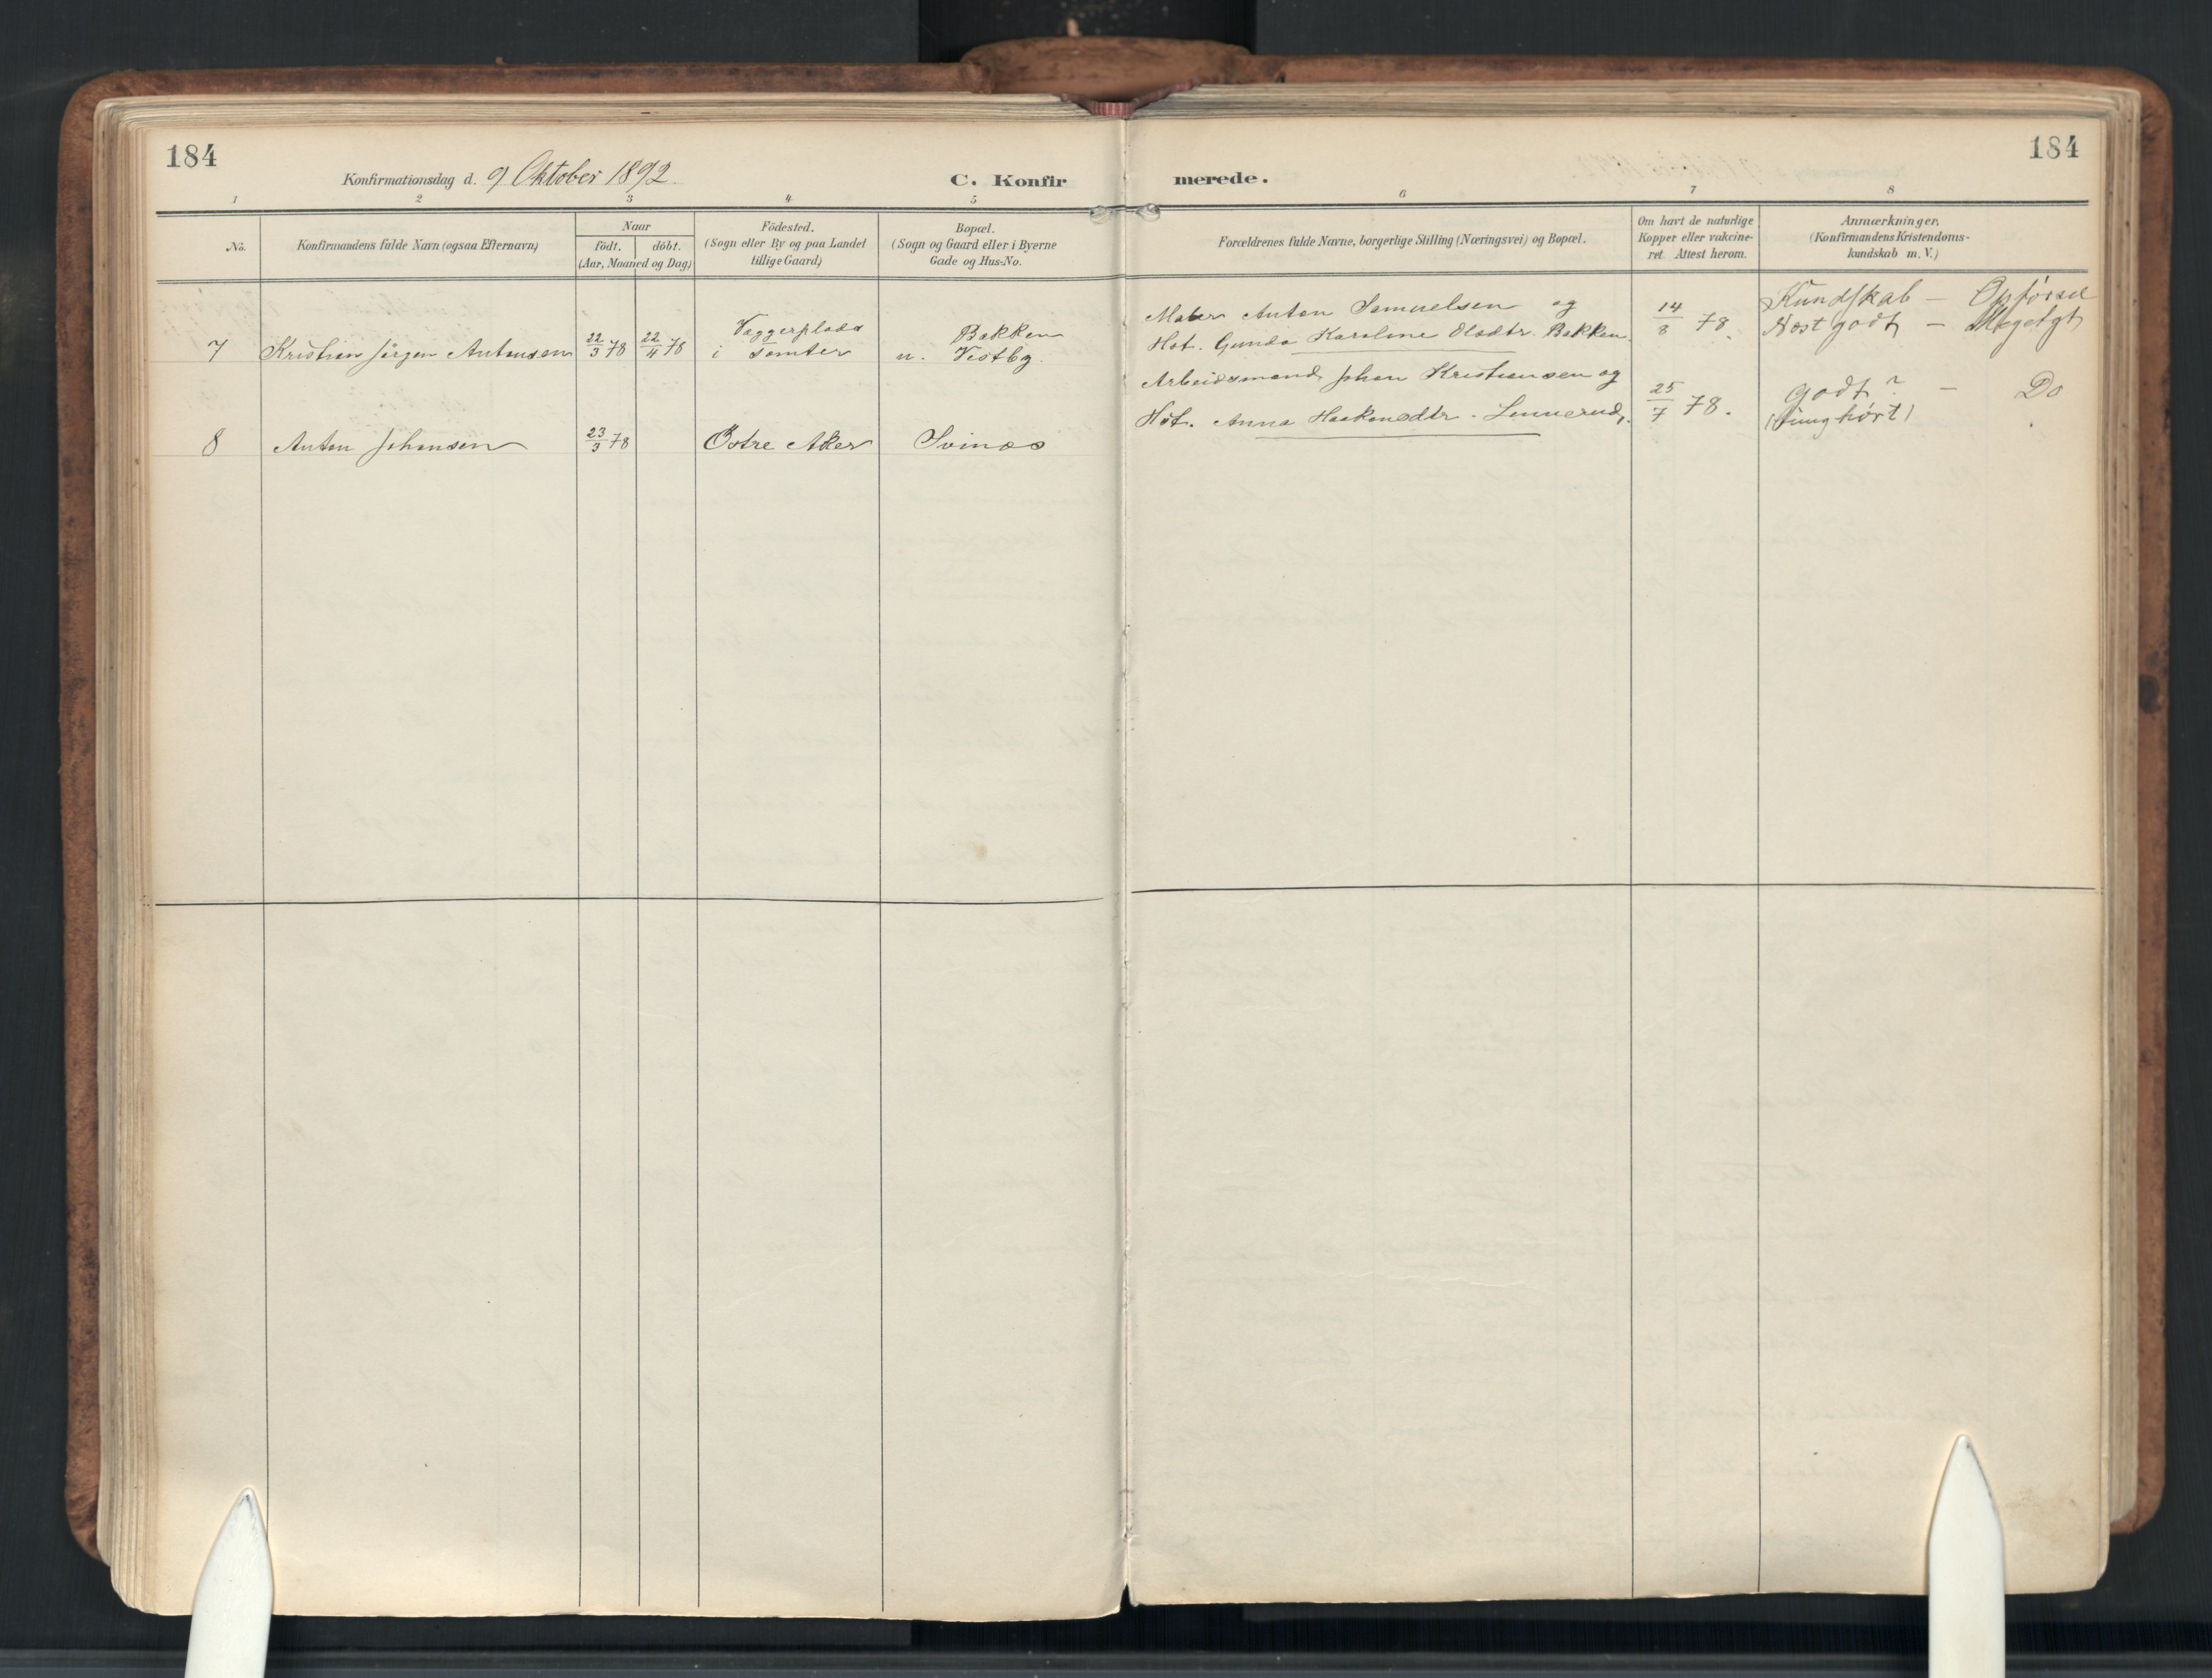 184
184
Konfirmationsdag d. 9 Oktober 1892.
C. Konfirmerede.
1 2 3 4 5 6 7 8
No.
Konfirmandens fulde Navn (ogsaa Efternavn)
Naar
födt. döbt.
(Aar, Maaned og Dag)
Födested.
(Sogn eller By og paa Landet
tillige Gaard)
Bopæl.
(Sogn og Gaard eller i Byerne
Gade og Hus-No.
Forældrenes fulde Navne, borgerlige Stilling (Næringsvei) og Bopæl.
Om havt de naturlige
Kopper eller vakcine-
ret. Attest herom.
Anmærkninger,
(Konfirmandens Kristendoms-
kundskab m. V.)
Kundskab — Opførsel
7 Kristian Jörgen Antonsen 22/3 78 22/4 78
i Sömter
Bakken
n. Vestby.
Maler Anton Samuelsen og
Hst. Gunda Karoline Olsdtr. Bakken.
14/8 78.
Næst godt — Megetgt
8 Anton Johansen 23/3 78 Östre Aker Svinæs
Arbeidsmand Johan Kristiansen og
Hst. Anna Haakensdtr.
25/7 78.
Godt? — Do
(tunghørt)